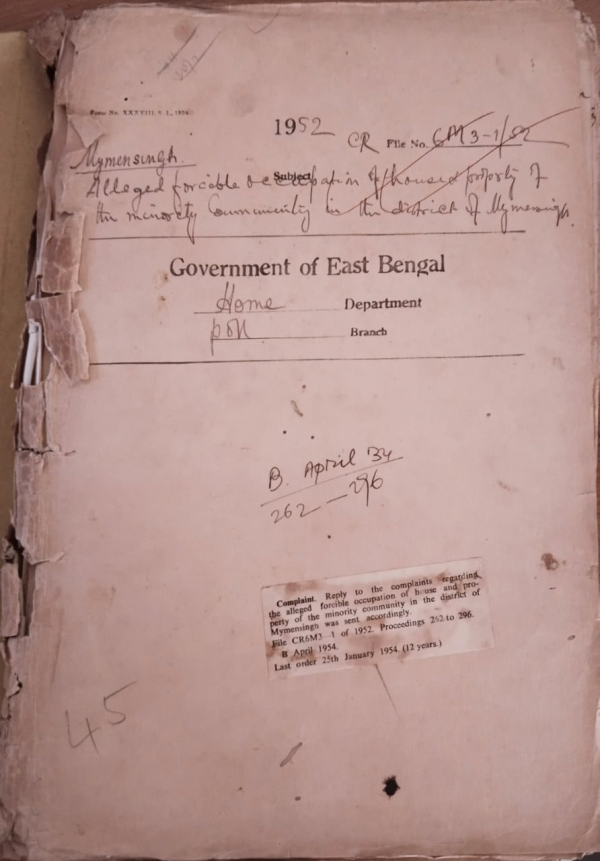 Form No. XXXVIII S. 1., 1950.
1952
CR File No. 6M3-1/52
Mymensingh.
Subject
Alleged forcible occupation of house & property of
the minority Community in the district of Mymensingh.
Government of East Bengal
Home Department
poll Branch
B. April 54
262 — 296
Complaint. Reply to the complaints regarding
the alleged forcible occupation of house and pro-
perty of the minority community in the district of
Mymensingh was sent accordingly.
File CR6M3—1 of 1952. Proceedings 262 to 296.
B April 1954.
Last order 25th January 1954. (12 years.)
45